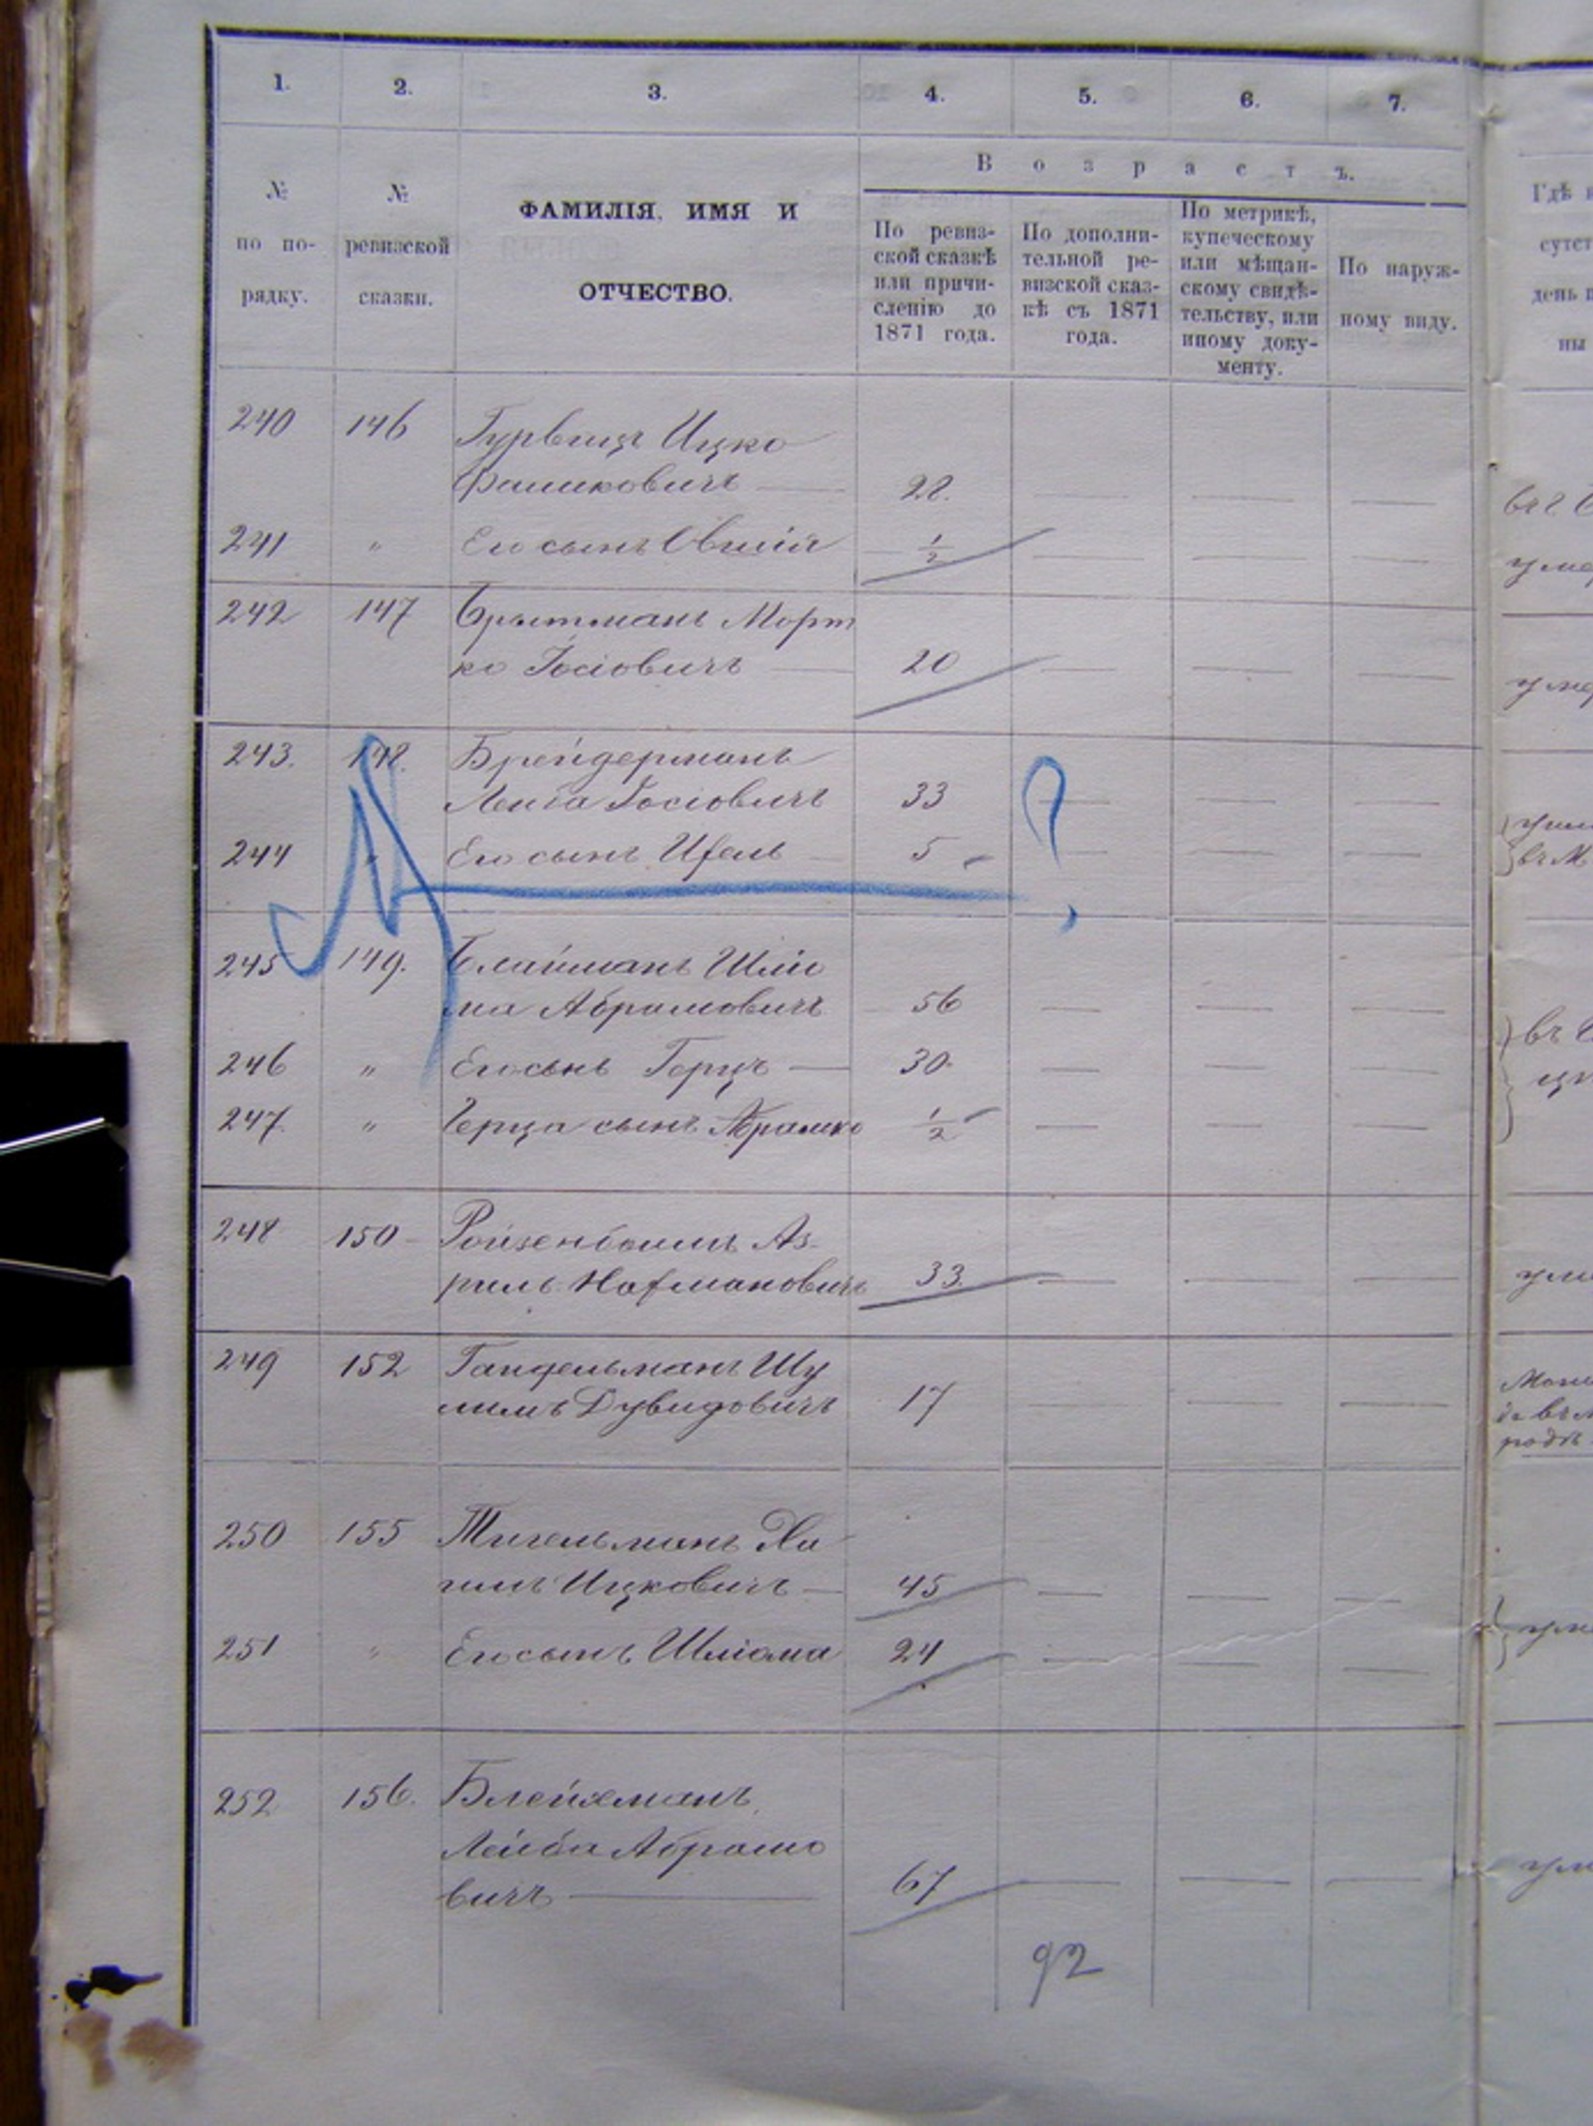 1. 2. 3. 4. 5. 6. 7.
№ по по-рядку.
№ ревизской сказки.
ФАМИЛІЯ, ИМЯ И
ОТЧЕСТВО.
Возрастъ.
По ревиз-
ской сказкѣ
или причи-
сленію до
1871 года.
По дополни-
тельной ре-
визской сказ-
кѣ съ 1871
года.
По метрикѣ,
купеческому
или мѣщан-
скому свидѣ-
тельству, или
иному доку-
менту.
По наруж-
ному виду.
240 146 Гурвицъ Ицко
Фишковичъ — 28.
241 " Его сынъ Овшій 1/2
242 147 Брытманъ Морт
ко Іосіовичъ — 20
243. 148. Брейдерманъ
Лейба Іосіовичъ 33
244 " Его сынъ Изель 5
?
245 149. Блайманъ Шліо
ма Абрамовичъ 56
246 " Его сынъ Герцъ — 30
247. " Герца сынъ Абрамко 1/2
248 150 Ройзенбаумъ Аз
риль Нафмановичъ 33
249 152 Гандельманъ Шу
лимъ Дувидовичъ 17
250 155 Тигельманъ Ха
имъ Ицковичъ — 45
251 " Его сынъ Шліома 24
252 156. Блейхманъ
Лейба Абрамо
вичъ — 67
92
Гдѣ
сутст
день
ны